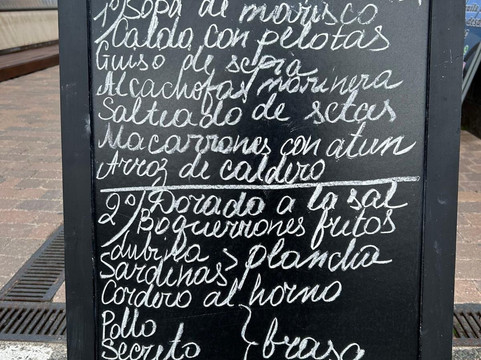 1º/Sopa de marisco
Caldo con pelotas
Guiso de sepia
Alcachofas marinera
Salteado de setas
Macarrones con atun
Arroz de caldero
2º/Dorado a la sal
Boquerrones fritos
Lubina
Sardinas > plancha
Cordero al horno
Pollo
Secreto } brasa